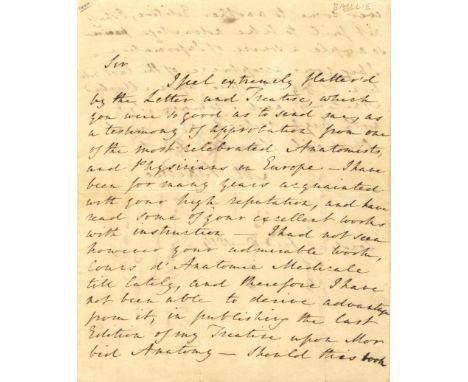 BAILLIE
Sir
I feel extremely flatter'd
by the Letter and Treatise, which
you were so good as to send me, as
a testimony of approbation from one
of the most celebrated Anatomists,
and Physicians in Europe – I have
been for many years acquainted
with your high reputation, and have
read some of your excellent works
with instruction – I had not seen
however your admirable work,
Cours d'Anatomie Medicale
till lately, and therefore I have
not been able to derive advantage
from it, in publishing the last
Edition of my Treatise upon Mor
bid Anatomy – Should this book